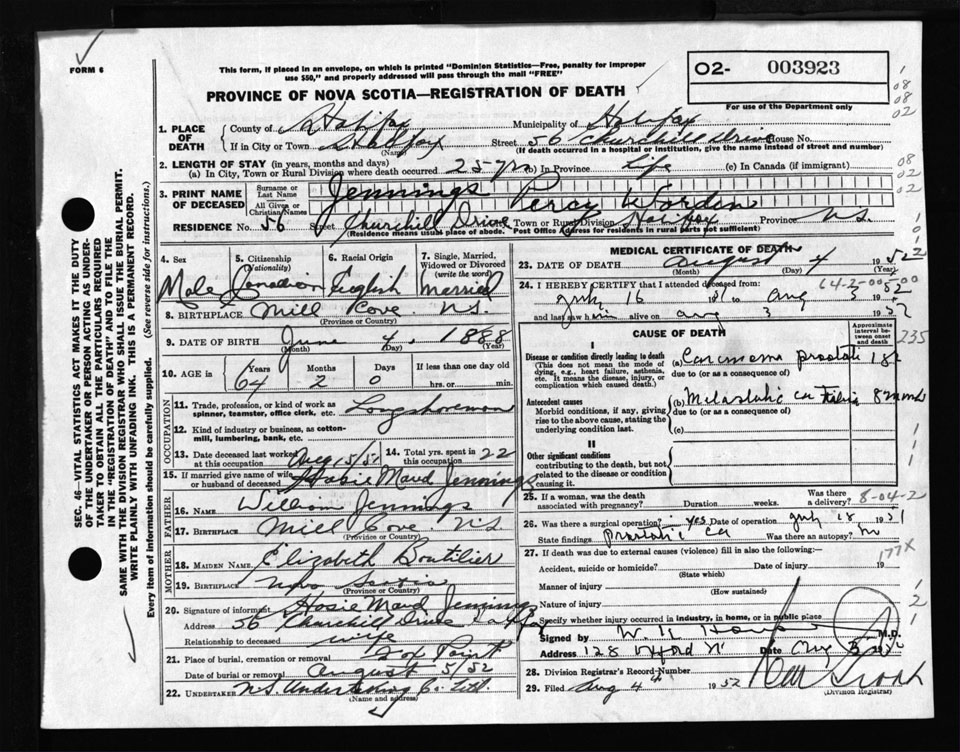 FORM 6
This form, if placed in an envelope, on which is printed "Dominion Statistics—Free, penalty for improper
use $50," and properly addressed will pass through the mail "FREE"
PROVINCE OF NOVA SCOTIA—REGISTRATION OF DEATH
O2- 003923
For use of the Department only
08
08
02
08
02
SEC. 46—VITAL STATISTICS ACT MAKES IT THE DUTY
OF THE UNDERTAKER OR PERSON ACTING AS UNDER-
TAKER TO OBTAIN ALL THE PARTICULARS REQUIRED
IN THE "REGISTRATION OF DEATH" AND TO FILE THE
SAME WITH THE DIVISION REGISTRAR WHO SHALL ISSUE THE BURIAL PERMIT.
WRITE PLAINLY WITH UNFADING INK. THIS IS A PERMANENT RECORD.
Every item of information should be carefully supplied. (See reverse side for instructions.)
1. PLACE OF DEATH
County of Halifax Municipality of Halifax
If in City or Town Halifax Street 56 Churchill Drive House No.
(Name) (If death occurred in a hospital or institution, give the name instead of street and number)
2. LENGTH OF STAY (in years, months and days)
(a) In City, Town or Rural Division where death occurred 25 yrs (b) In Province Life (c) In Canada (if immigrant)
3. PRINT NAME OF DECEASED
Surname or Last Name Jennings
All Given or Christian Names Percy Worden
RESIDENCE No. 56 Street Churchill Drive Town or Rural Division Halifax Province N.S.
(Residence means usual place of abode. Post Office Address for residents in rural parts not sufficient)
4. Sex Male
5. Citizenship (Nationality) Canadian
6. Racial Origin English
7. Single, Married, Widowed or Divorced (write the word) Married
8. BIRTHPLACE Mill Cove N.S.
(Province or Country)
9. DATE OF BIRTH June 4, 1888
(Month) (Day) (Year)
10. AGE in Years 64 Months 2 Days 0 If less than one day
hrs. or min.
OCCUPATION
11. Trade, profession, or kind of work as
spinner, teamster, office clerk, etc. Longshoreman
12. Kind of industry or business, as cotton-
mill, lumbering, bank, etc.
13. Date deceased last worked at this occupation Aug 15/51
14. Total yrs. spent in this occupation 22
15. If married give name of wife or husband of deceased Hosie Maud Jennings
FATHER
16. NAME William Jennings
17. BIRTHPLACE Mill Cove N.S.
(Province or Country)
MOTHER
18. MAIDEN NAME Elizabeth Boutilier
19. BIRTHPLACE Nova Scotia
(Province or Country)
20. Signature of informant Hosie Maud Jennings
Address 56 Churchill Drive Halifax
Relationship to deceased wife
21. Place of burial, cremation or removal Fox Point
Date of burial or removal August 5/52
22. UNDERTAKER N.S. Undertaking Co. Ltd.
(Name and address)
MEDICAL CERTIFICATE OF DEATH
23. DATE OF DEATH August 4 1952
(Month) (Day) (Year)
24. I HEREBY CERTIFY that I attended deceased from:
July 16 51 to Aug 3 1952
and last saw him alive on Aug 3 1952
CAUSE OF DEATH
Approximate interval between onset and death
235
I
Disease or condition directly leading to death
(This does not mean the mode of dying, e.g., heart failure, asthenia, etc. It means the disease, injury, or complication which caused death.)
(a) Carcinoma prostate
due to (or as a consequence of)
Antecedent causes
Morbid conditions, if any, giving rise to the above cause, stating the underlying condition last.
(b) Metastatic ca 8 months
due to (or as a consequence of)
(c)
II
Other significant conditions
contributing to the death, but not related to the disease or condition causing it.
25. If a woman, was the death associated with pregnancy? Duration weeks. Was there a delivery? 8-04-2
26. Was there a surgical operation? yes Date of operation July 18 1951
State findings Prostatic ca Was there an autopsy? no
27. If death was due to external causes (violence) fill in also the following:—
177X
Accident, suicide or homicide? Date of injury 19
(State which)
Manner of injury
(How sustained)
Nature of injury
Specify whether injury occurred in industry, in home, or in public place
Signed by M.D.
Address 128 Oxford St Date Aug 5
28. Division Registrar's Record-Number
29. Filed Aug 4th 1952
(Division Registrar)